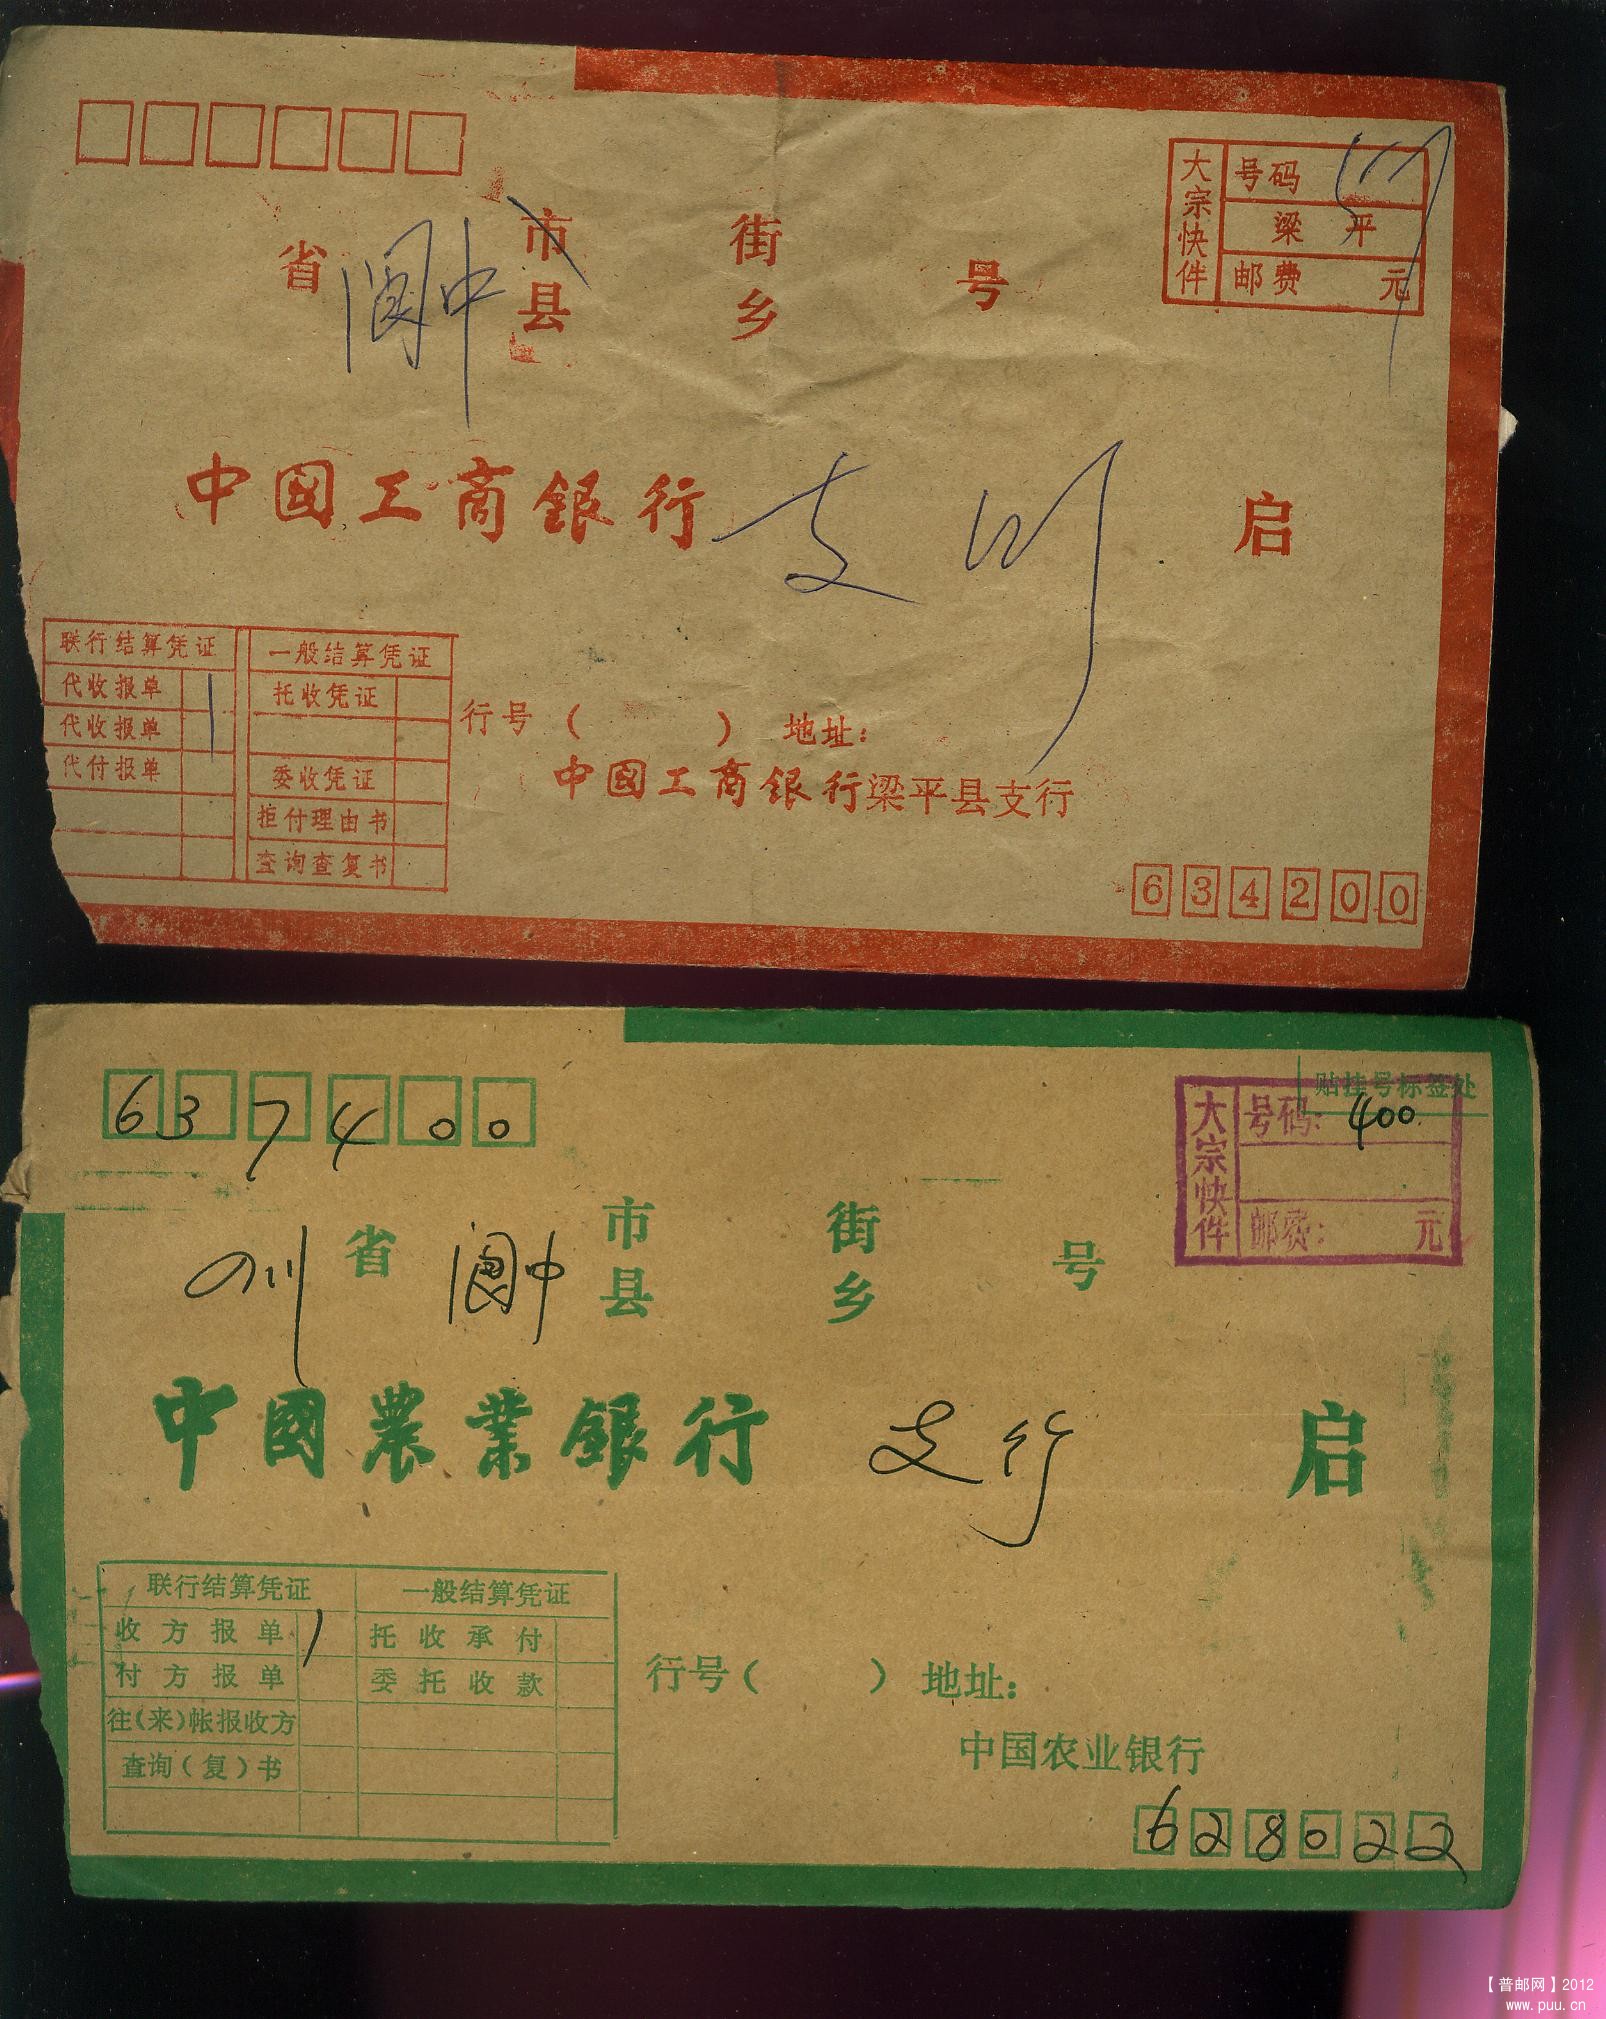 大宗快件
号码
梁 平
邮费 元
省 阆中 市县 街乡 号
中國工商銀行 支行 启
联行结算凭证 一般结算凭证
代收报单 1 托收凭证
代收报单
代付报单 委收凭证
拒付理由书
查询查复书
行号( ) 地址:
中國工商銀行梁平县支行
634200
637400
贴挂号标签处
大宗快件
号码: 400
邮费: 元
四川 省 阆中 市县 街乡 号
中國農業銀行 支行 启
联行结算凭证 一般结算凭证
收方报单 1 托收承付
付方报单 委托收款
往(来)帐报收方
查询(复)书
行号( ) 地址:
中国农业银行
628022
【普邮网】2012
www.puu.cn